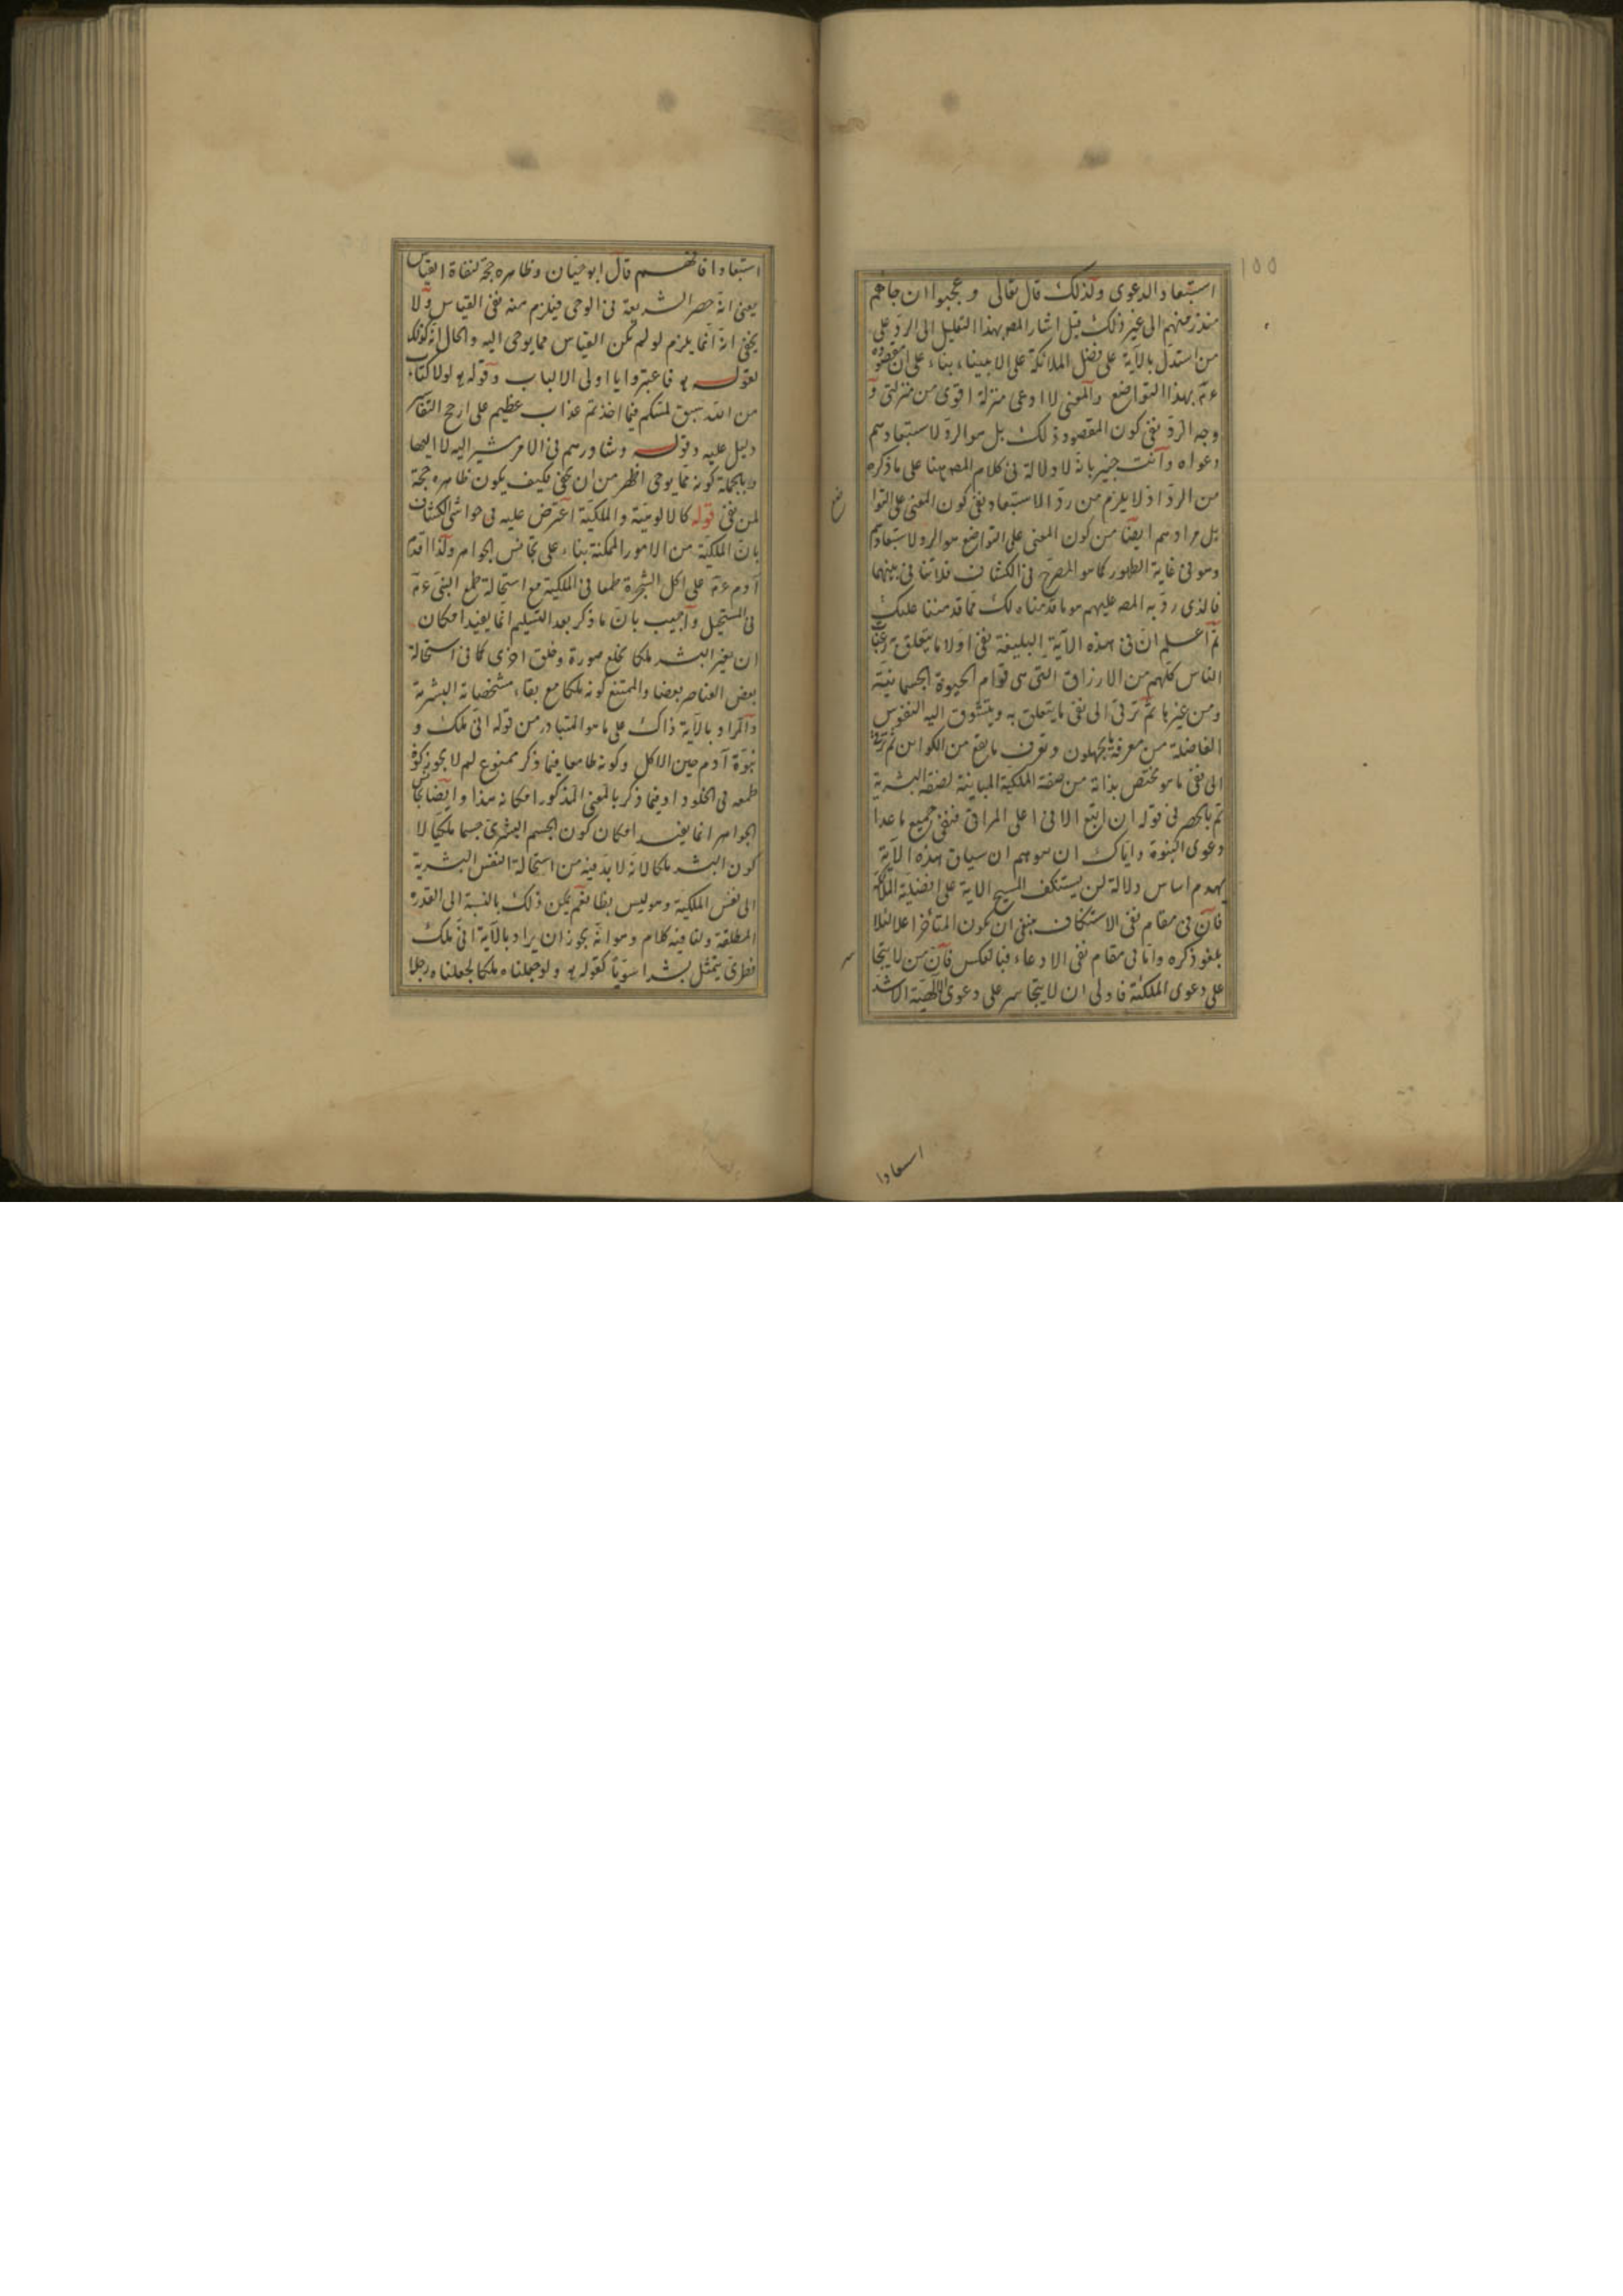 ١٥٥
استبعاد الدعوى ولذلك قال تعالى وعجبوا ان جاءهم
منذر منهم الى غير ذلك قيل اشار المص بهذا التعليل الى الرد على
من استدل بالآية على فضل الملائكة على الانبياء بناء على ان مقصوده
عم بهذا التواضع والمعنى لا ادعى منزلة اقوى من منزلتى و
وجه الرد نفى كون المقصود ذلك بل هو الرد لاستبعادهم
دعواه وانت خبير بانه لا دلالة فى كلام المص هنا على ما ذكره
من الرد اذ لا يلزم من رد الاستبعاد نفى كون المعنى على التوا
ضع
بل مرادهم ايضا من كون المعنى على التواضع هو الرد لاستبعادهم
وهو فى غاية الظهور كما هو المصرح فى الكشاف فلا تنافى بينهما
فالذى رد به المص عليهم هو ما قدمناه لك مما قد مننا عليك
ثم اعلم ان فى هذه الآية البليغة نفى اولا ما يتعلق به رغبات
الناس كلهم من الارزاق التى هى قوام الحيوة الجسمانية
ومن غيرها ثم ترقى الى نفى ما يتعلق به ويتشوق اليه النفوس
الفاضلة من معرفة ما يجهلون وتعرف ما يقع من الكوائن ثم ترقى
الى نفى ما هو مختص بذاته من صفة الملكية المباينة لصفة البشرية
ثم بالحصر فى قوله ان اتبع الا فى اعلى المراقى فنفى جميع ما عدا
دعوى النبوة واياك ان تتوهم ان سياق هذه الآية
يهدم اساس دلالة لن يستنكف المسيح الاية على افضلية الملائكة
فان فى مقام نفى الاستنكاف ينبغى ان يكون المتأخر اعلا لئلا
يلغو ذكره واما فى مقام نفى الادعاء فبالعكس فان من لا يتجا
سر
على دعوى الملكية فاولى ان لا يتجاسر على دعوى الالهية الاشد
استبعادا
استبعادا فافهم قال ابو حيان وظاهره حجة لنفاة القياس
يعنى انه حصر الشريعة فى الوحى فيلزم منه نفى القياس ولا
يخفى انه انما يلزم لو لم يكن القياس مما يوحى اليه والحال انه كذلك
لقوله تع فاعتبروا يا اولى الالباب وقوله تع لولا كتاب
من الله سبق لمسكم فيما اخذتم عذاب عظيم على ارجح التفاسير
دليل عليه وقوله وشاورهم فى الامر مشير اليه لا اليها
وبالجملة كونه مما يوحى اظهر من ان يخفى فكيف يكون ظاهره حجة
لمن نفى قوله كالالوهية والملكية اعترض عليه فى حواشى الكشاف
بان الملكية من الامور الممكنة بناء على تجانس الجواهر ولذا اقدم
آدم عم على اكل الشجرة طمعا فى الملكية مع استحالة طمع النبى عم
فى المستحيل واجيب بان ما ذكر بعد التسليم انما يفيد امكان
ان يغير البشر ملكا بخلع صورة وخلق اخرى كما فى استحالة
بعض العناصر بعضا والممتنع كونه ملكا مع بقاء مشخصاته البشرية
والمراد بالآية ذاك على ما هو المتبادر من قوله انى ملك و
نبوة آدم حين الاكل وكونه طامعا فيما ذكر ممنوع لم لا يجوز كون
طمعه فى الخلود او فيما ذكر بالمعنى المذكور امكانه هذا وايضا تجانس
الجواهر انما يفيد امكان كون الجسم البشرى جسما ملكيا لا
كون البشر ملكا لانه لا بد فيه من استحالة النفس البشرية
الى نفس الملكية وهو ليس بظاهر نعم يمكن ذلك بالنسبة الى القدرة
المطلقة ولنا فيه كلام وهو انه يجوز ان يراد بالآية انى ملك
فطرى يتمثل بشرا سويا كقوله تع ولو جعلناه ملكا لجعلناه رجلا